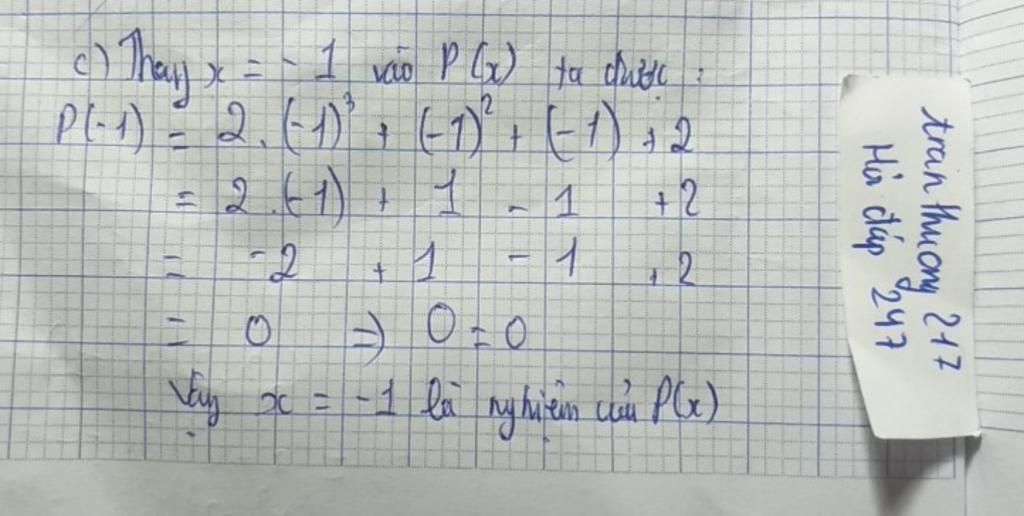 c) Thay x = - 1 vào P(x) ta được :
P(-1) = 2. (-1)³ + (-1)² + (-1) + 2
= 2.(-1) + 1 - 1 + 2
= -2 + 1 - 1 + 2
= 0 ⇒ 0 = 0
Vậy x = -1 là nghiệm của P(x)
tranthuong 217
Hỏi đáp 247